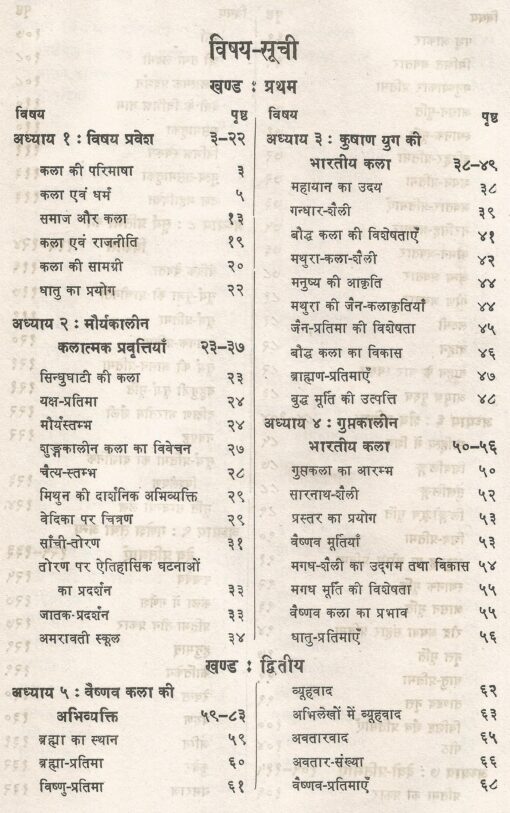 विषय-सूची
खण्ड : प्रथम
विषय पृष्ठ
अध्याय १ : विषय प्रवेश ३–२२
कला की परिभाषा ३
कला एवं धर्म ५
समाज और कला १३
कला एवं राजनीति १९
कला की सामग्री २०
धातु का प्रयोग २२
अध्याय २ : मौर्यकालीन
कलात्मक प्रवृत्तियाँ २३–३७
सिन्धुघाटी की कला २३
यक्ष-प्रतिमा २४
मौर्यस्तम्भ २४
शुङ्गकालीन कला का विवेचन २७
चैत्य-स्तम्भ २८
मिथुन की दार्शनिक अभिव्यक्ति २९
वेदिका पर चित्रण २९
साँची-तोरण ३१
तोरण पर ऐतिहासिक घटनाओं
का प्रदर्शन ३३
जातक-प्रदर्शन ३३
अमरावती स्कूल ३४
विषय पृष्ठ
अध्याय ३ : कुषाण युग की
भारतीय कला ३८–४९
महायान का उदय ३८
गन्धार-शैली ३९
बौद्ध कला की विशेषताएँ ४१
मथुरा-कला-शैली ४२
मनुष्य की आकृति ४४
मथुरा की जैन-कलाकृतियाँ ४४
जैन-प्रतिमा की विशेषता ४५
बौद्ध कला का विकास ४६
ब्राह्मण-प्रतिमाएँ ४७
बुद्ध मूर्ति की उत्पत्ति ४८
अध्याय ४ : गुप्तकालीन
भारतीय कला ५०–५६
गुप्तकला का आरम्भ ५०
सारनाथ-शैली ५२
प्रस्तर का प्रयोग ५३
वैष्णव मूर्तियाँ ५३
मगध-शैली का उद्गम तथा विकास ५४
मगध मूर्ति की विशेषता ५५
वैष्णव कला का प्रभाव ५५
धातु-प्रतिमाएँ ५६
खण्ड : द्वितीय
अध्याय ५ : वैष्णव कला की
अभिव्यक्ति ५९–८३
ब्रह्मा का स्थान ५९
ब्रह्मा-प्रतिमा ६०
विष्णु-प्रतिमा ६१
व्यूहवाद ६२
अभिलेखों में व्यूहवाद ६३
अवतारवाद ६५
अवतार-संख्या ६६
वैष्णव-प्रतिमाएँ ६८